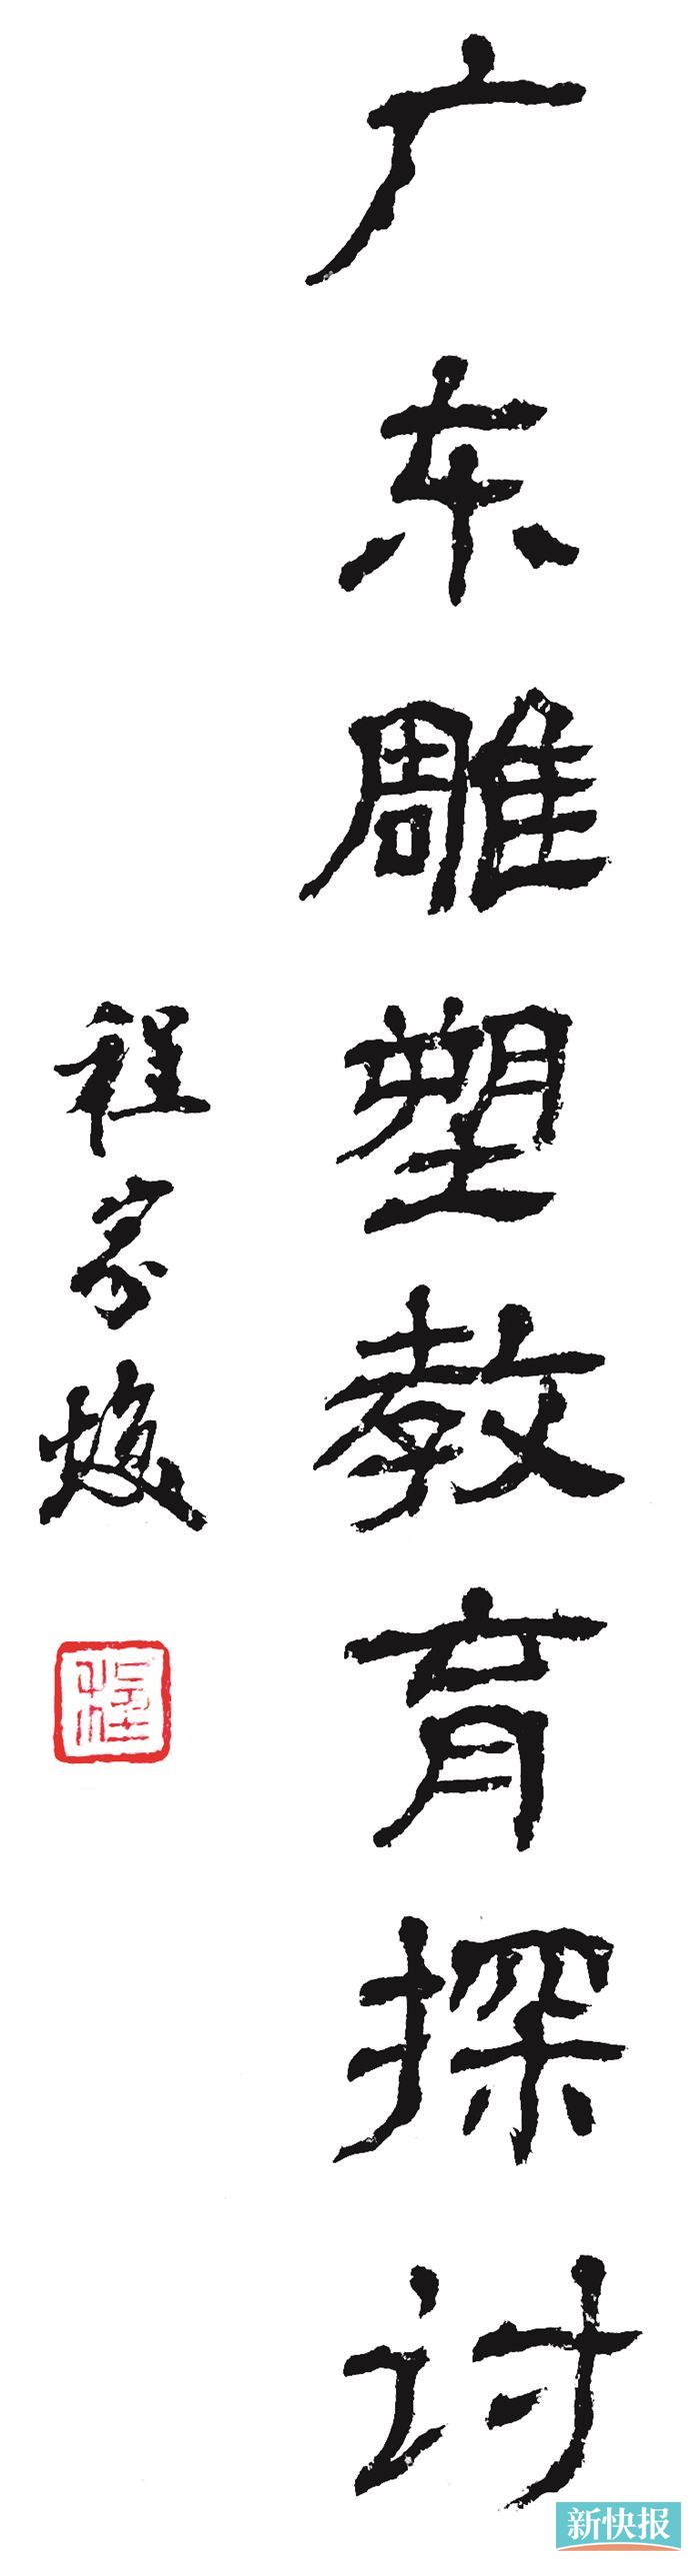 广东雕塑教育探讨
程家焕
程
新快报